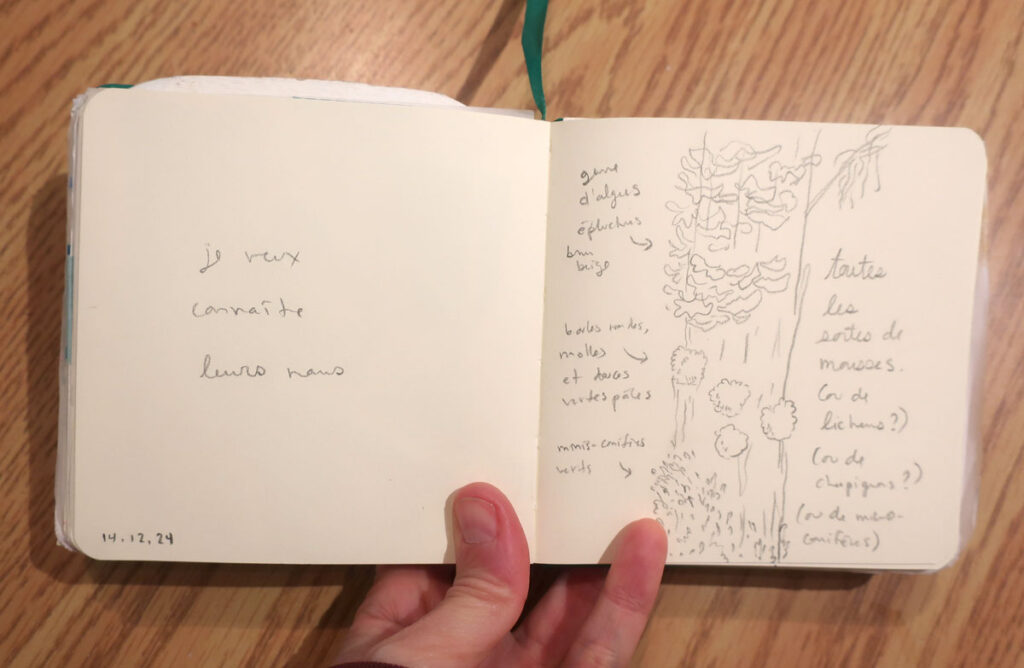 je veux
connaître
leurs noms
14.12.24
genre
d'algues
épluchures
brun
beige
boules rondes,
molles
et douces
vertes pâles
minis-conifères
verts
toutes
les
sortes de
mousses.
(ou de
lichens?)
(ou de
champignons?)
(ou de micro-
conifères)